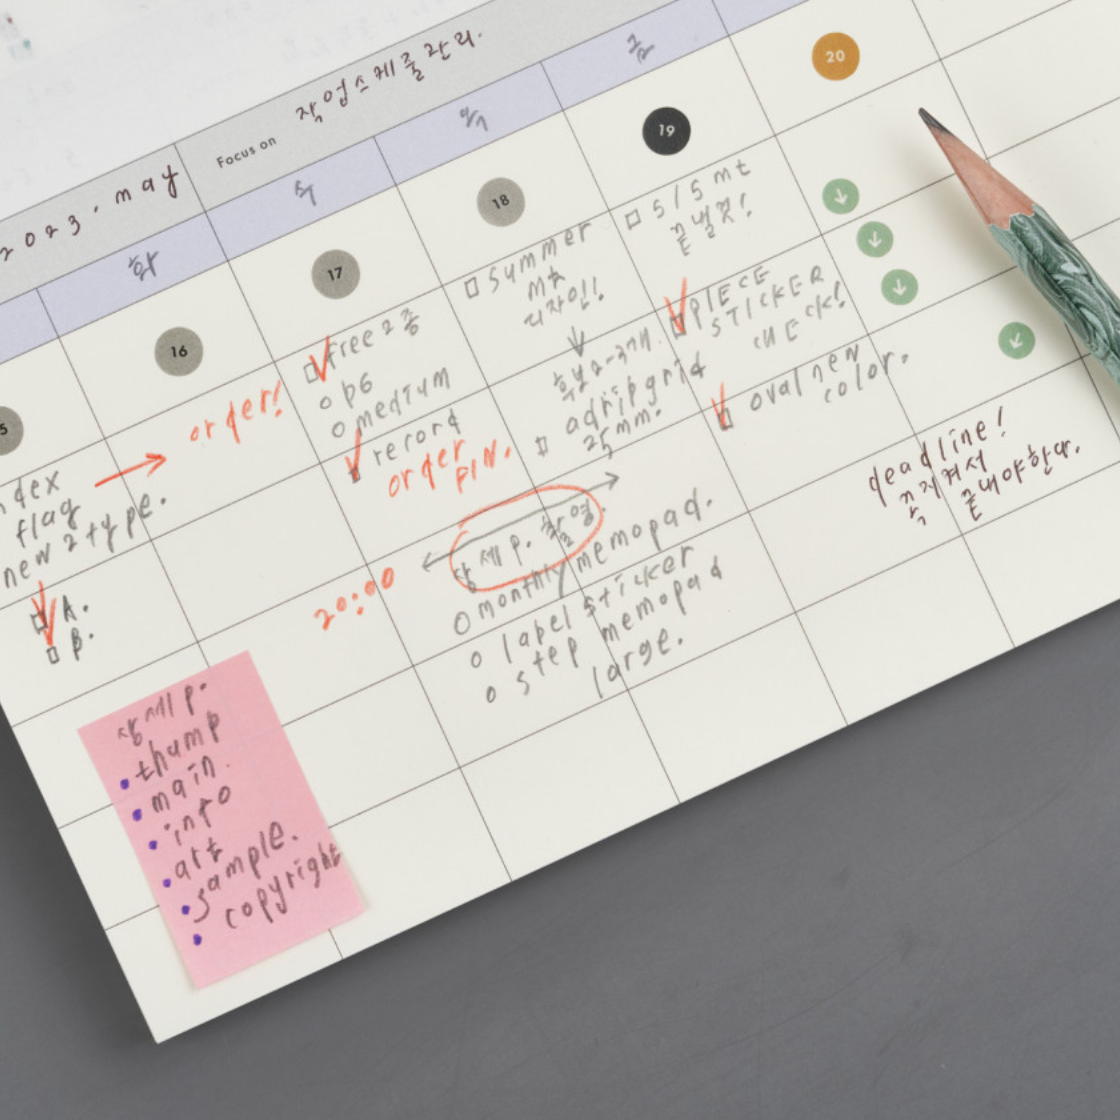 2023. may
Focus on 작업스케줄관리.
화
수
목
금
5
16
17
18
19
20
dex
flag
new 2type.
A.
B.
order!
free 2종
p6
medium
record
order
PIN.
20:00
summer
디자인!
후보 2-3개.
adripgrid
25mm.
상세 p. 촬영.
monthly memopad.
label sticker
step memopad
large.
5/5 mt
끝낼것!
PIECE
STICKER
CHECK!
oval new
color.
deadline!
꼭 지켜서
끝내야한다.
상세 p.
thump
main.
info
art
sample.
copyright